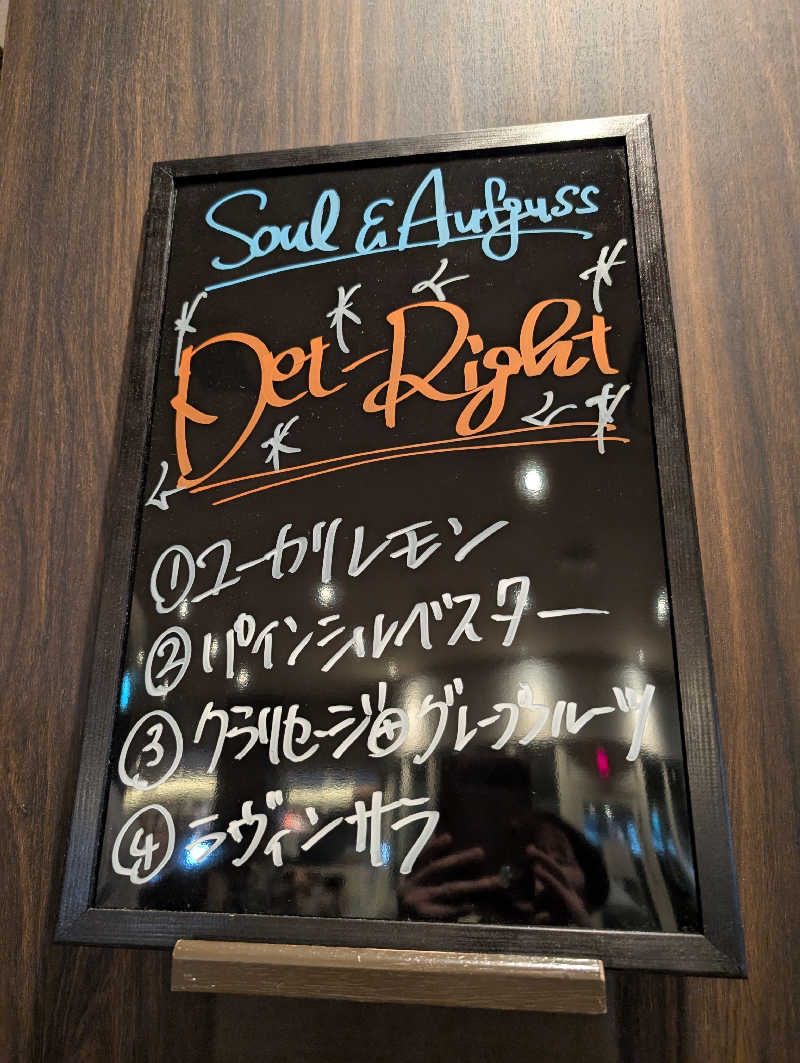 Soul & Aufguss
Det-Right
①ユーカリレモン
②パインシルベスター
③クラリセージ⊕グレープフルーツ
④ラヴィンサラ